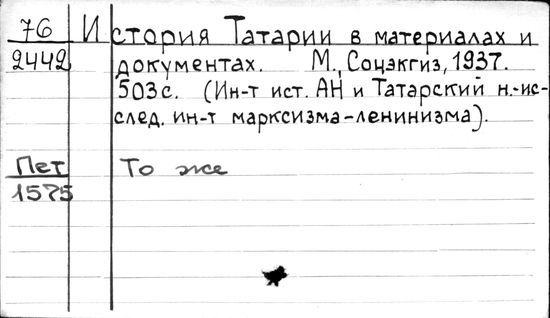 76 История Татарии в материалах и
2442 документах. М., Соцэкгиз, 1937.
503с. (Ин-т ист. АН и Татарский н.-ис-
след. ин-т марксизма-ленинизма).
Пет То же
1575